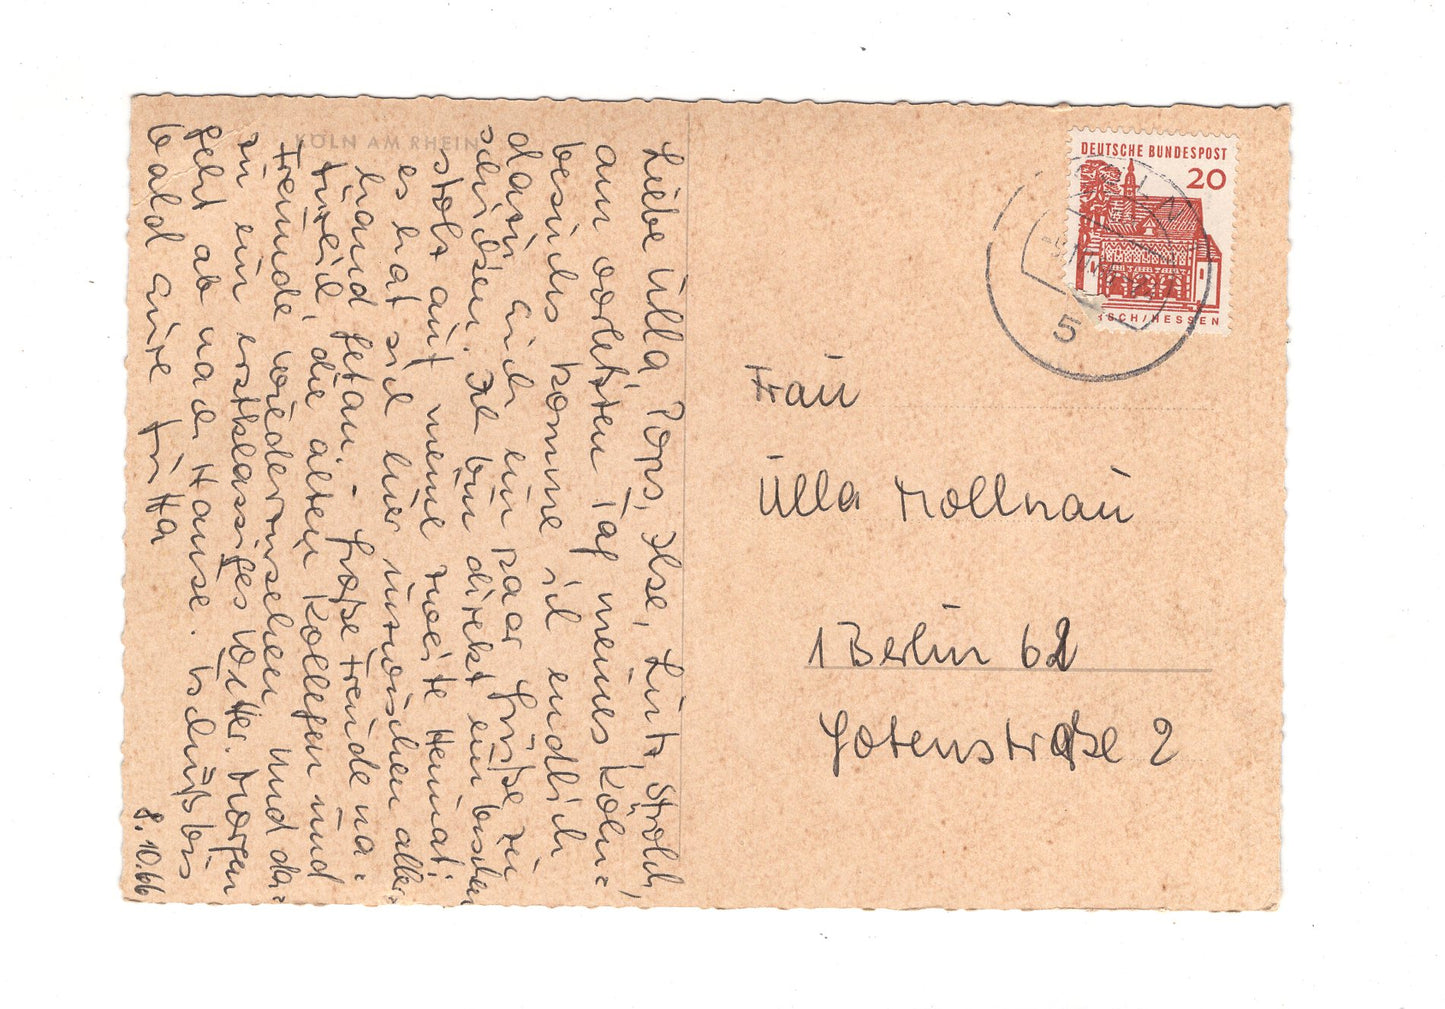 KÖLN AM RHEIN
Liebe Ulla, Pons, Ilse, Lutz, Strolch,
am vorletzten Tag meines Köln=
besuchs komme ich endlich
dazu euch ein paar Grüße zu
schicken. Ich bin direkt ein bischen
stolz auf meine zweite Heimat:
es hat sich hier inzwischen aller=
hand getan. Große Freude na=
türlich, die alten Kollegen und
Freunde wiederzusehen und da=
zu ein erstklassiges Wetter. Morgen
geht ab nach Hause. Tschüß bis
bald eure
8.10.66
DEUTSCHE BUNDESPOST
20
RSCH/HESSEN
5
Frau
Ulla Mollnau
1 Berlin 62
Gotenstraße 2